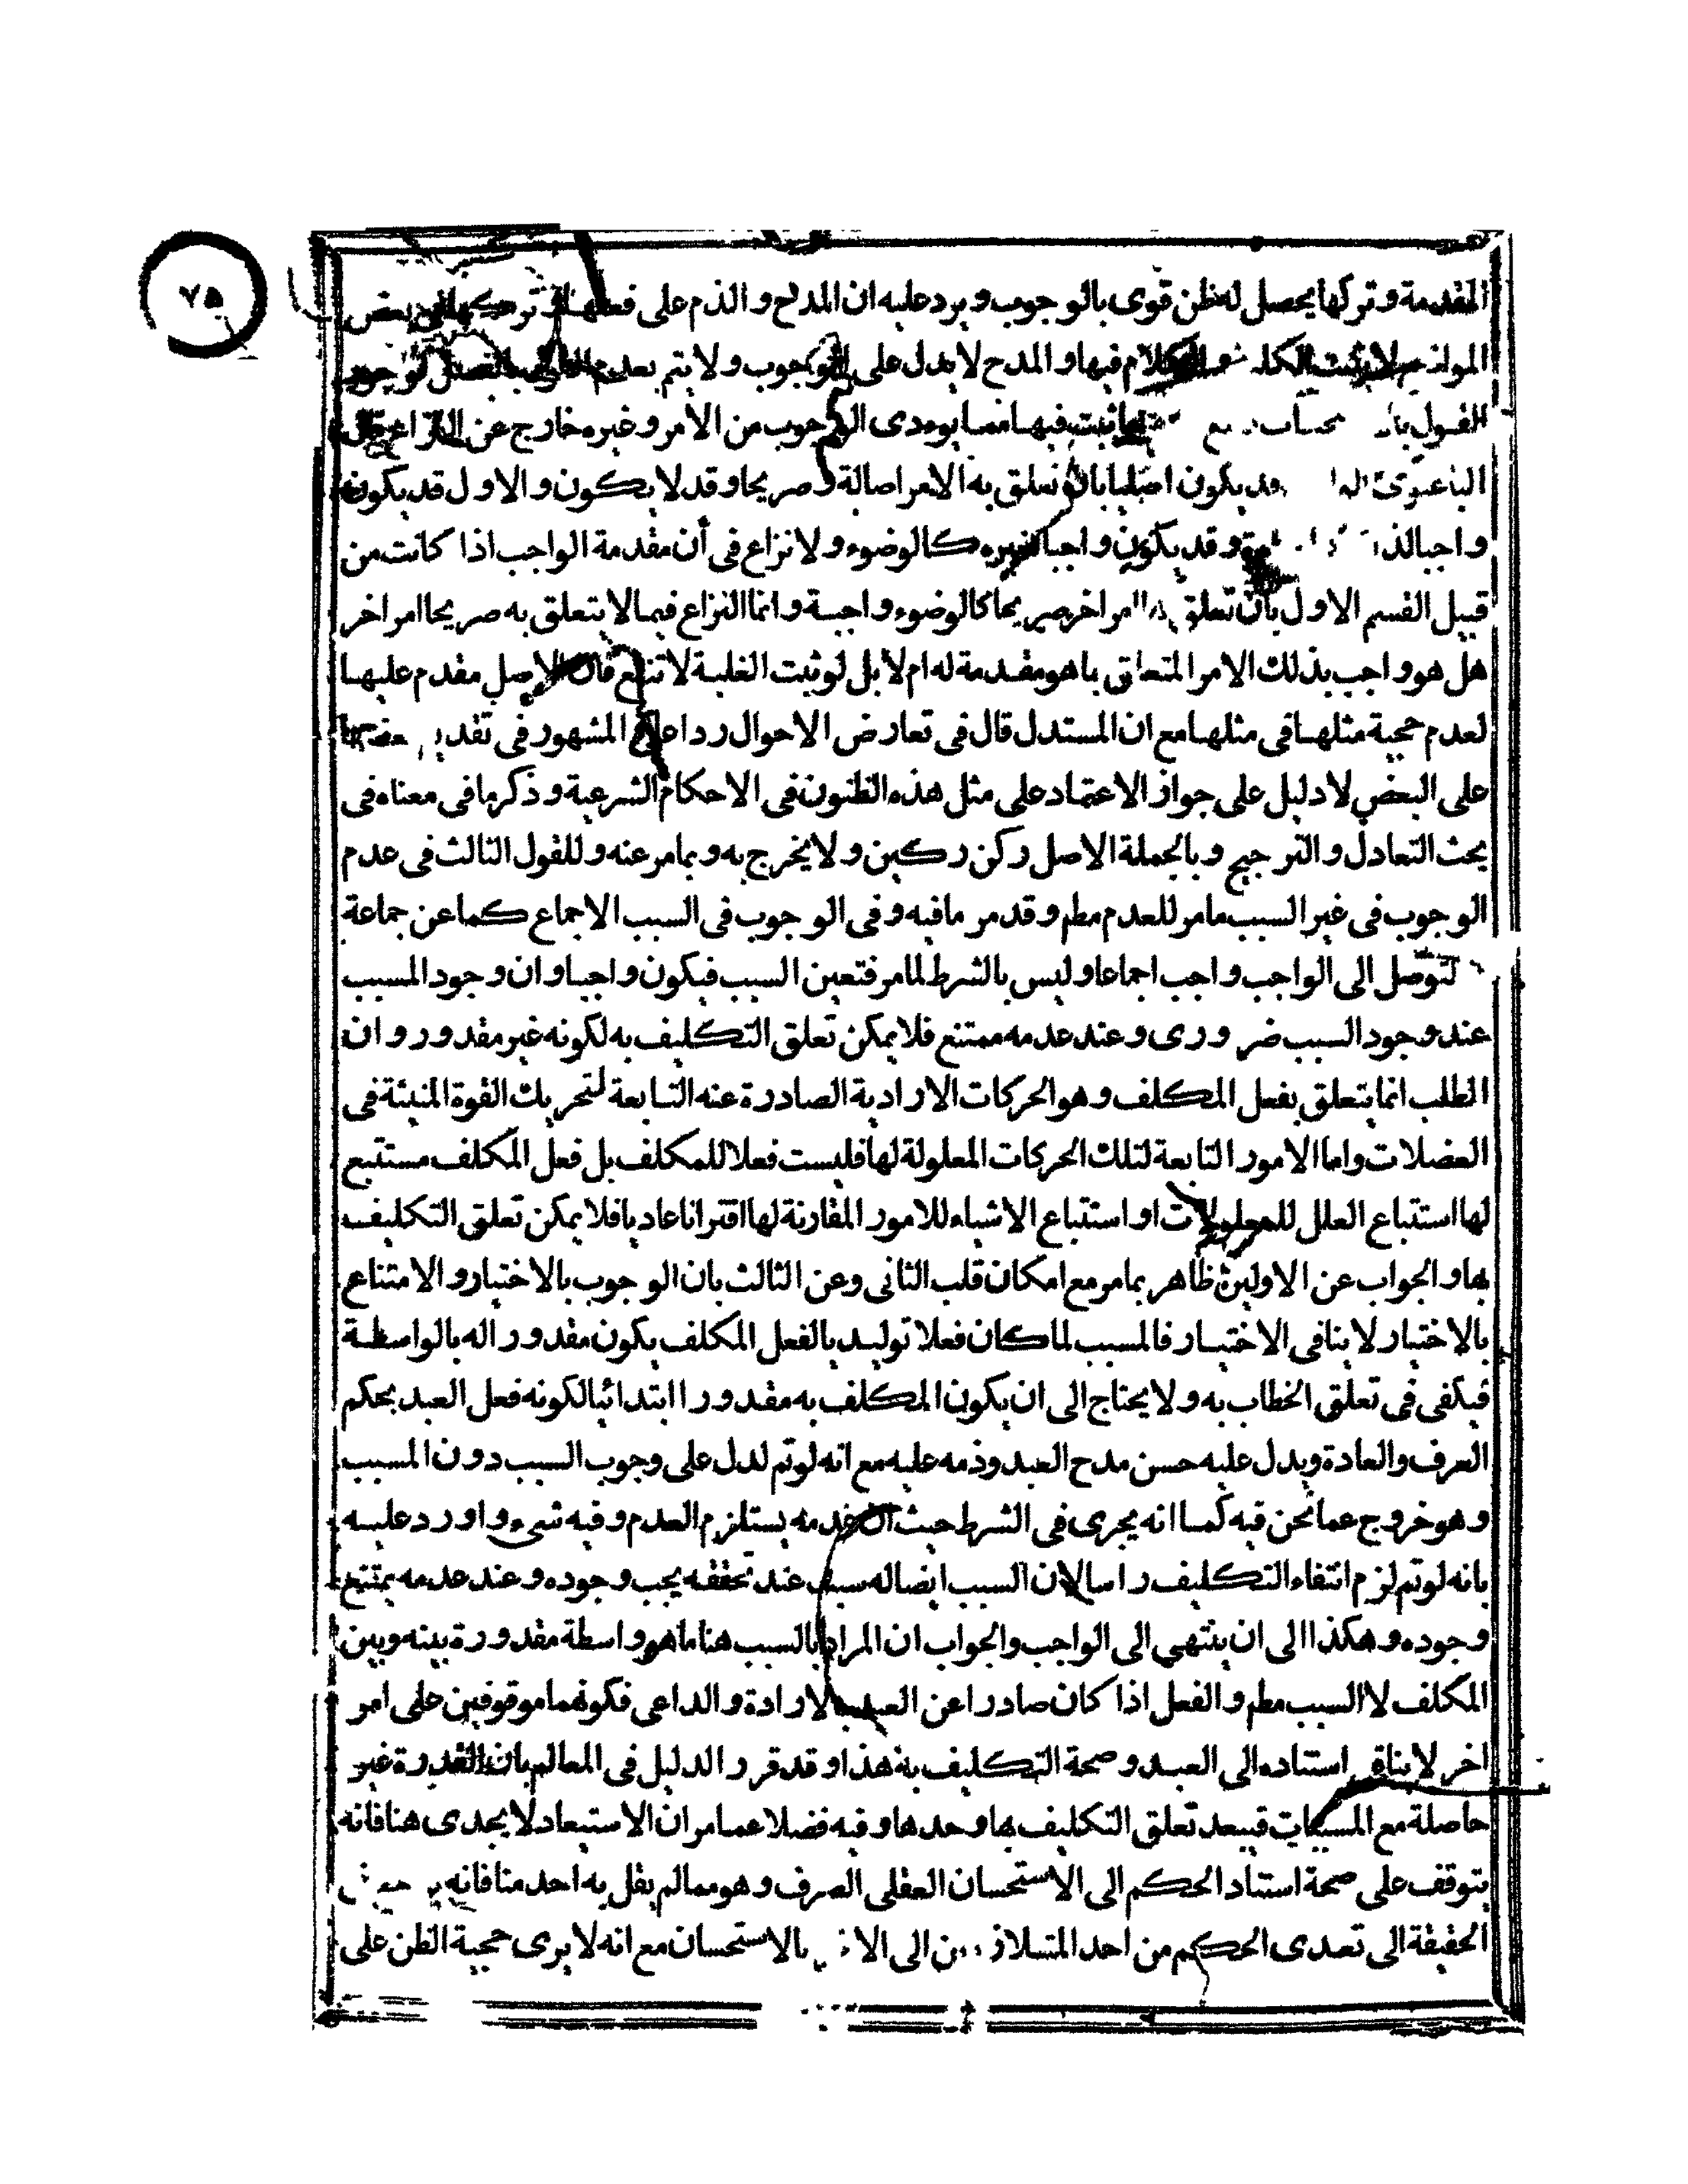 ٧۵
المقدمة وتركها يحصل له ظن قوى بالوجوب ويرد عليه ان المدح والذم على فعلها او تركها فى بعض
المواد لا يثبت فيها والمدح لا يدل على الوجوب ولا يتم بعدم
القول ثبت فيها مما يؤدى الوجوب من الأمر وغيره خارج عن النزاع قال
الباغنوى يكون اصليا بان تعلق به الامر اصالة وصريحا وقد لا يكون والاول قد يكون
واجبا لذا وقد يكون واجبا لغيره كالوضوء ولا نزاع فى أن مقدمة الواجب اذا كانت من
قبيل القسم الاول بأن تعلق امر اخر صريحا كالوضوء واجبة وانما النزاع فيما لا يتعلق به صريحا امر اخر
هل هو واجب بذلك الامر المتعلق بما هو مقدمة له ام لا بل لو ثبت الغلبة لا تنفع فان الاصل مقدم عليها
لعدم حجية مثلها فى مثلها مع ان المستدل قال فى تعارض الاحوال ردا على المشهور فى تقديم بعضها
على البعض لا دليل على جواز الاعتماد على مثل هذه الظنون فى الاحكام الشرعية وذكر ما فى معناه فى
بحث التعادل والترجيح وبالجملة الاصل ركن ركين ولا يخرج به وبما مر عنه وللقول الثالث فى عدم
الوجوب فى غير السبب ما مر للعدم مطم وقد مر ما فيه وفى الوجوب فى السبب الاجماع كما عن جماعة
لتوصل الى الواجب واجب اجماعا وليس بالشرط لما مر فتعين السبب فيكون واجبا وان وجود المسبب
عند وجود السبب ضرورى وعند عدمه ممتنع فلا يمكن تعلق التكليف به لكونه غير مقدور وان
الطلب انما يتعلق بفعل المكلف وهو الحركات الارادية الصادرة عنه التابعة لتحريك القوة المنبثة فى
العضلات واما الامور التابعة لتلك الحركات المعلولة لها فليست فعلا للمكلف بل فعل المكلف مستتبع
لها استتباع العلل للمعلولات او استتباع الاشياء للامور المقارنة لها اقترانا عاديا فلا يمكن تعلق التكليف
بها والجواب عن الاولين ظاهر بما مر مع امكان قلب الثانى وعن الثالث بان الوجوب بالاختيار والامتناع
بالاختيار لا ينافى الاختيار فالمسبب لما كان فعلا توليديا لفعل المكلف يكون مقدورا له بالواسطة
فيكفى فى تعلق الخطاب به ولا يحتاج الى ان يكون المكلف به مقدورا ابتدائيا لكونه فعل العبد بحكم
العرف والعادة ويدل عليه حسن مدح العبد وذمه عليه مع انه لو تم لدل على وجوب السبب دون المسبب
وهو خروج عما نحن فيه كما انه يجرى فى الشرط حيث ان عدمه يستلزم العدم وفيه شىء واورد عليه
بانه لو تم لزم انتفاء التكليف راسا لان السبب ايضا له سبب عند تحققه يجب وجوده وعند عدمه يمتنع
وجوده وهكذا الى ان ينتهى الى الواجب والجواب ان المراد بالسبب هنا ما هو واسطة مقدورة بينه وبين
المكلف لا السبب مطم والفعل اذا كان صادرا عن العبد بالارادة والداعى فكونهما موقوفين على امر
اخر لا ينافى استناده الى العبد وصحة التكليف به هذا وقد قرر الدليل فى المعالم بان القدرة غير
حاصلة مع المسببات فيبعد تعلق التكليف بها وحدها وفيه فضلا عما مر ان الاستبعاد لا يجدى هنا فانه
يتوقف على صحة استناد الحكم الى الاستحسان العقلى الصرف وهو مما لم يقل به احد منا فانه
الحقيقة الى تعدى الحكم من احد المتلازمين الى الاخر بالاستحسان مع انه لا يرى حجية الظن على